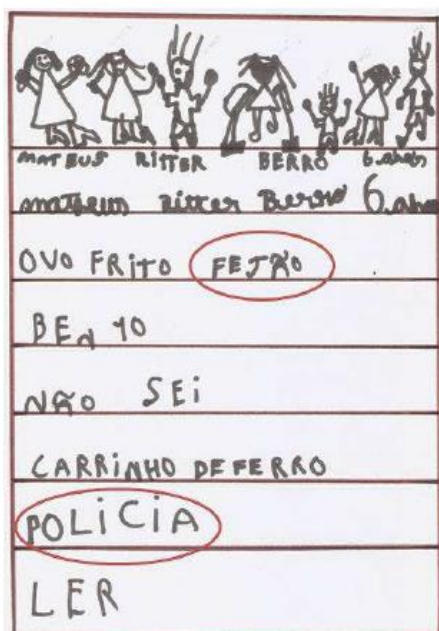 MATEUS RITTER BERRO 6.anos
matheus Ritter Berro 6.anos
OVO FRITO FEJÃO
BEN 10
NÃO SEI
CARRINHO DE FERRO
POLICIA
LER